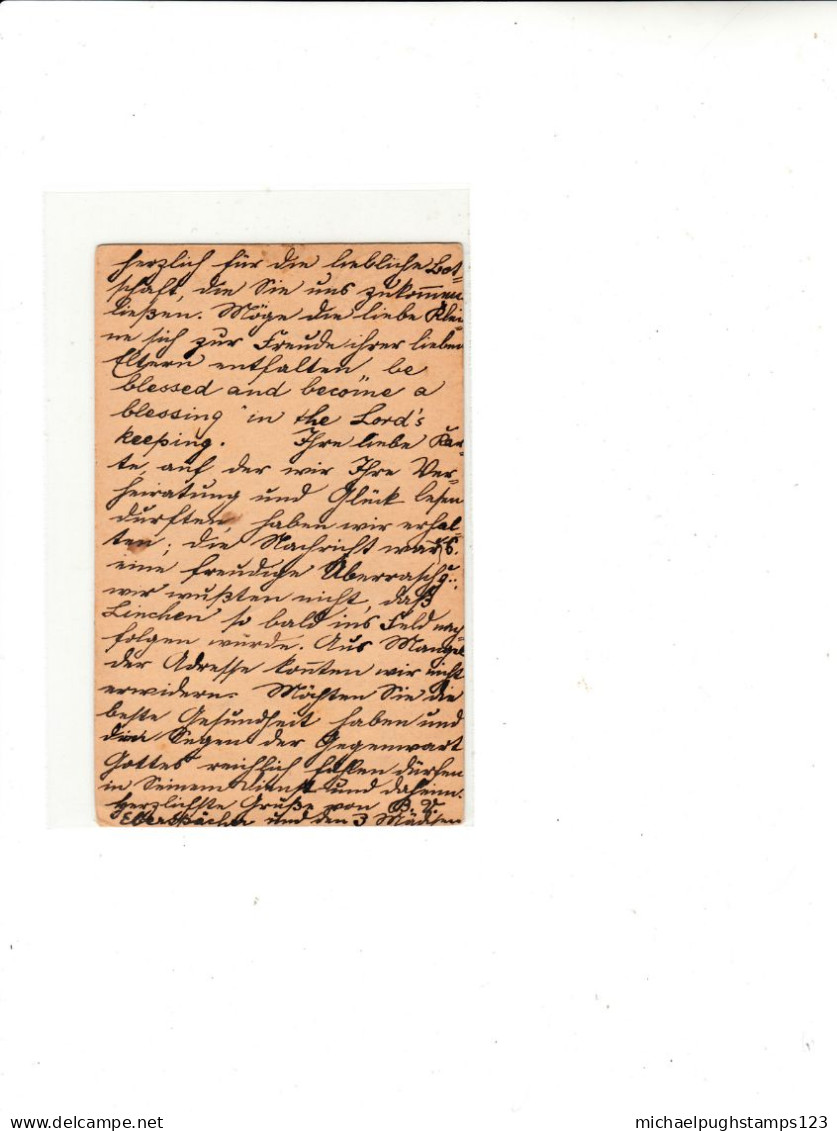 herzlich für die liebliche Bot-
schaft, die Sie uns zukommen
ließen. Möge die liebe Klei-
ne sich zur Freude ihrer lieben
Eltern entfalten be
blessed and become a
blessing in the Lord's
keeping. Ihre liebe Kar-
te, auf der wir Ihre Ver-
heiratung und Glück lesen
durften, haben wir erhal-
ten; die Nachricht war
eine freudige Überraschg.:
wir wußten nicht, daß
Linchen so bald ins Feld nach-
folgen würde. Aus Mangel
der Adresse konnten wir nicht
erwidern. Möchten Sie die
beste Gesundheit haben und
den Segen der Gegenwart
Gottes reichlich haben dürfen
in Seinem Dienst und daheim.
Herzlichste Grüße von B. U.
Eberspächer und den 3 Mädchen
michaelpughstamps123